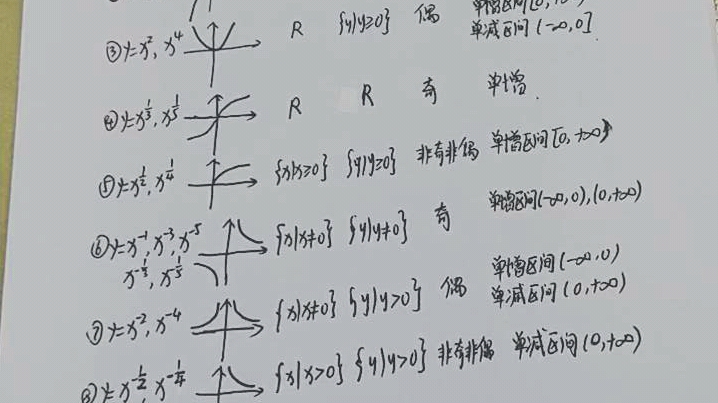 单增区间[0,+∞)
③ y=x², x⁴ R {y|y≥0} 偶 单减区间(-∞,0]
④ y=x^{1/3}, x^{1/5} R R 奇 单增.
⑤ y=x^{1/2}, x^{1/4} {x|x≥0} {y|y≥0} 非奇非偶 单增区间[0,+∞)
⑥ y=x⁻¹, x⁻³, x⁻⁵ {x|x≠0} {y|y≠0} 奇 单增区间(-∞,0),(0,+∞)
x^{-1/3}, x^{-1/5}
单增区间(-∞,0)
⑦ y=x⁻², x⁻⁴ {x|x≠0} {y|y>0} 偶 单减区间(0,+∞)
⑧ y=x^{-1/2}, x^{-1/4} {x|x>0} {y|y>0} 非奇非偶 单减区间(0,+∞)